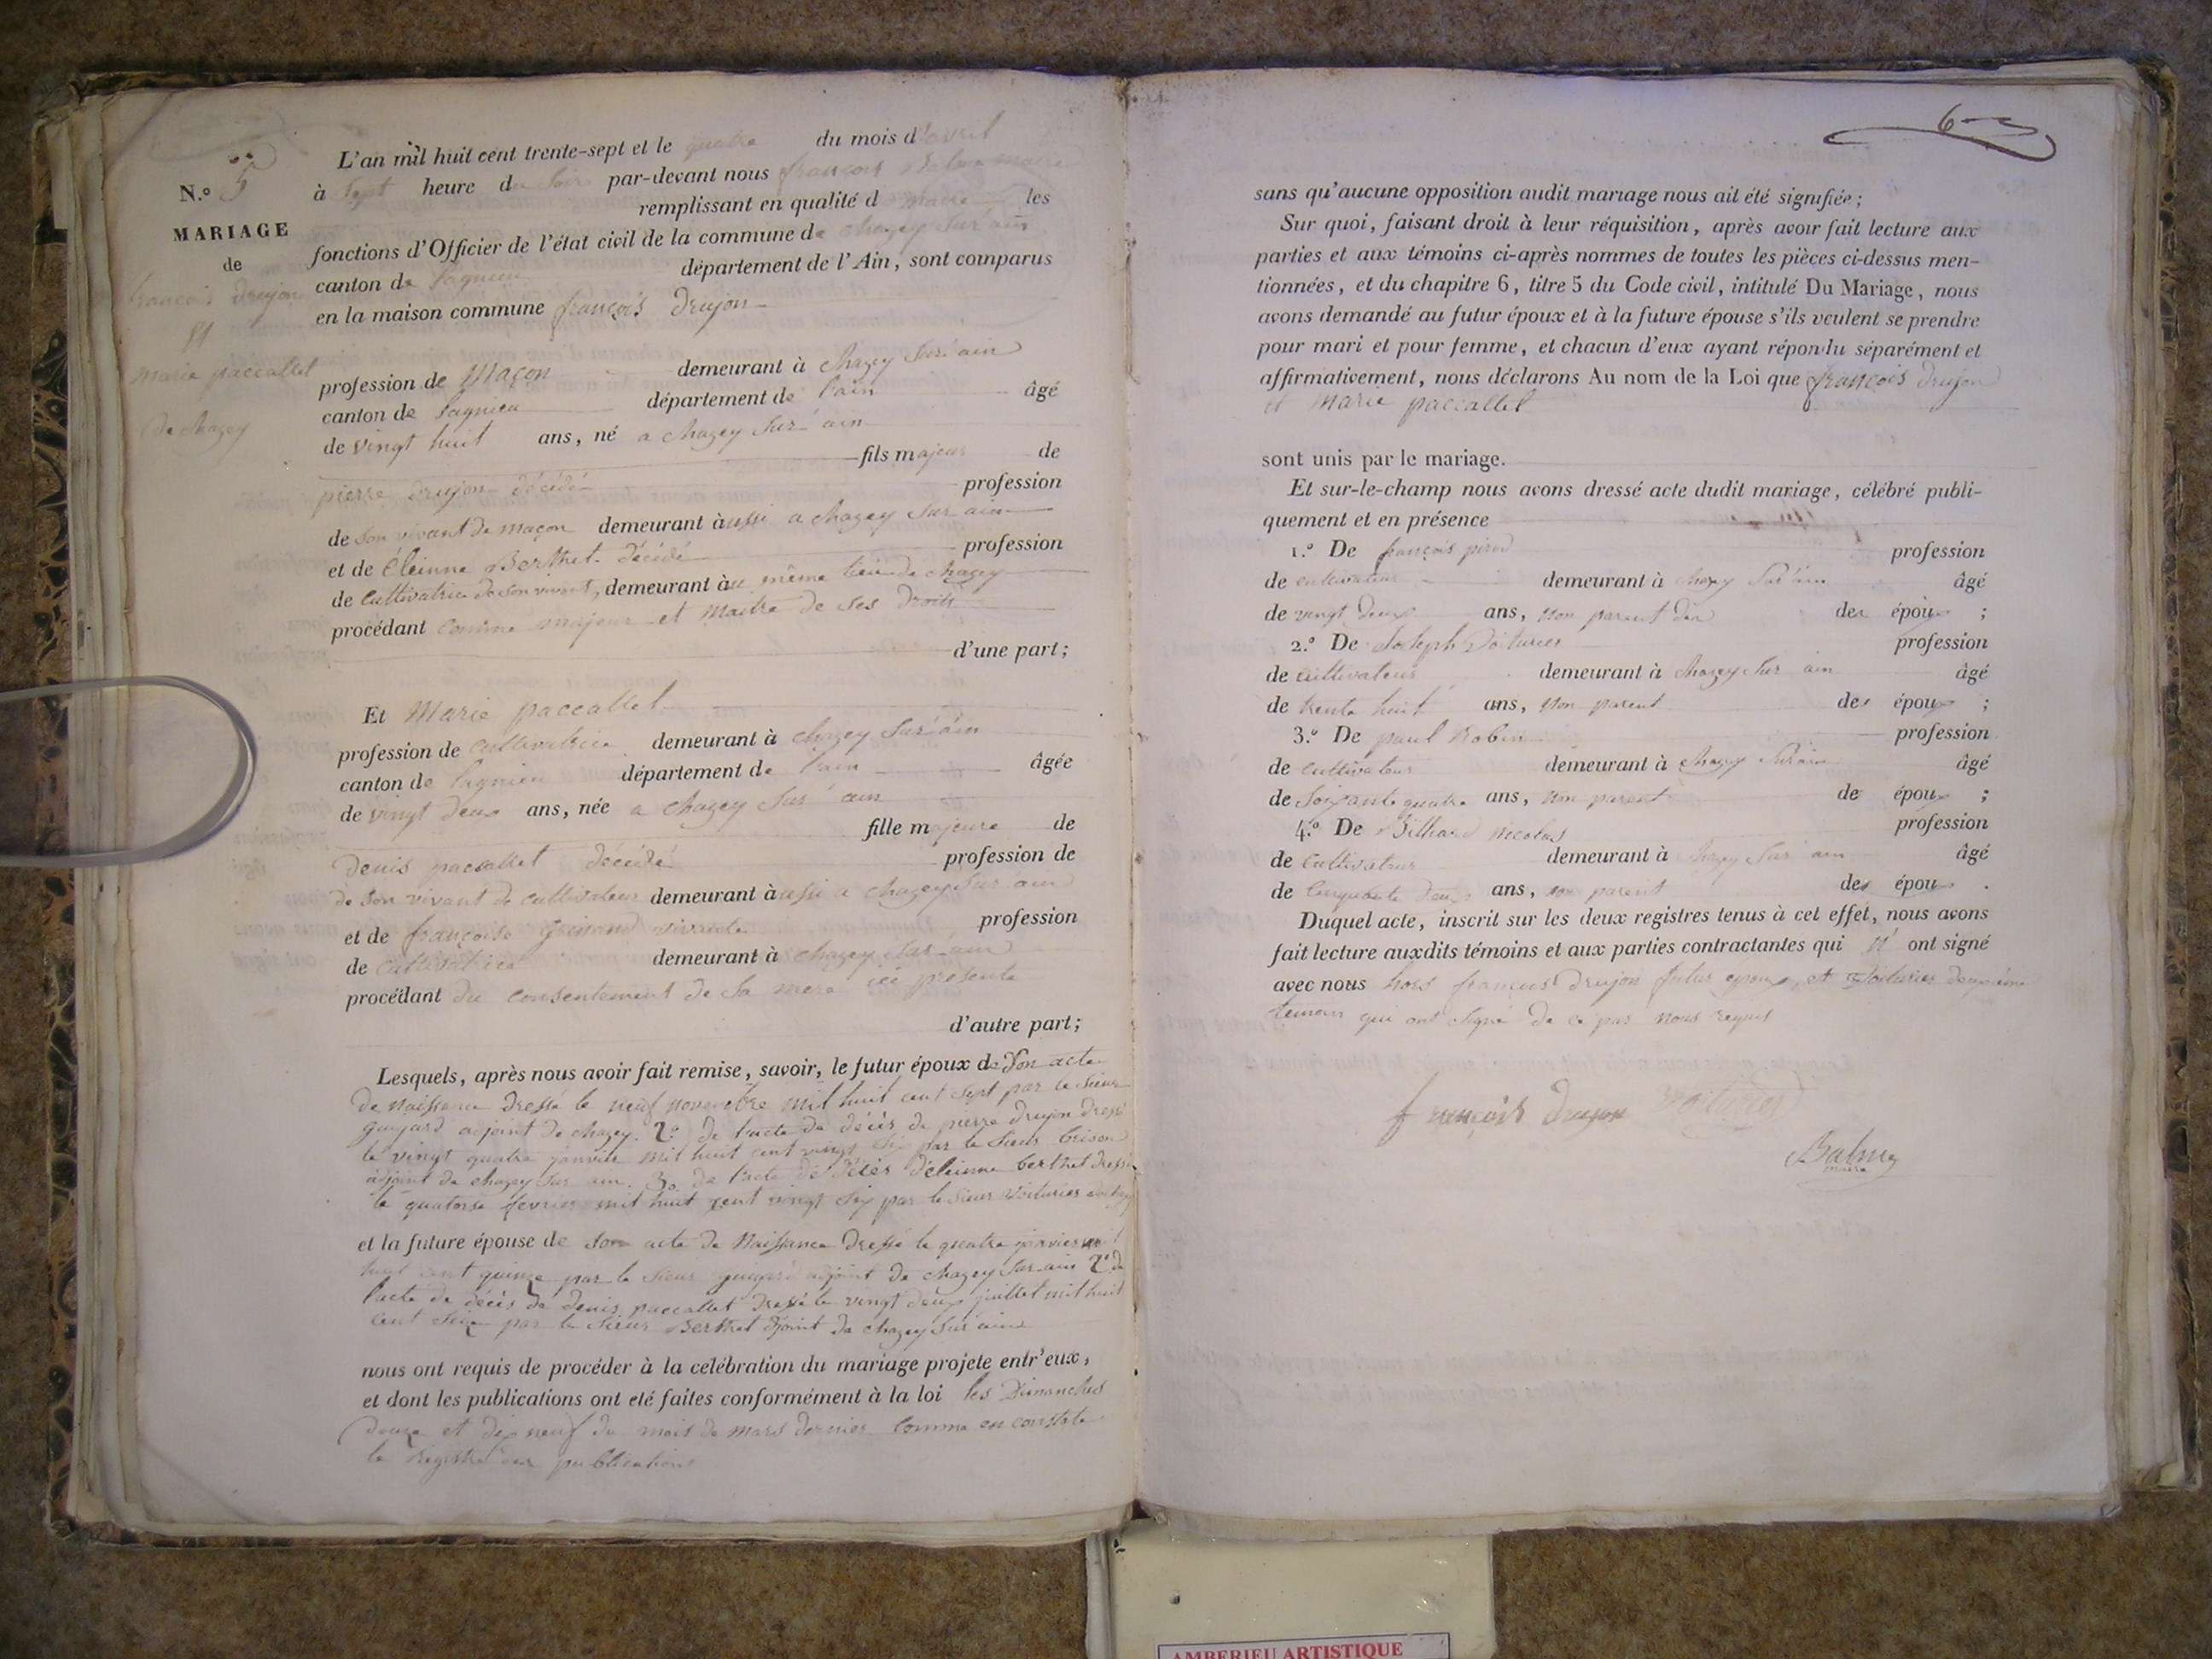 N.º 5
MARIAGE
de
françois Drujon
et
marie paccallet
de Chazey
L'an mil huit cent trente-sept et le quatre du mois d'avril
à sept heure du soir par-devant nous françois Balme maire
remplissant en qualité d maire les
fonctions d'Officier de l'état civil de la commune de chazey sur ain
canton de Lagnieu département de l'Ain, sont comparus
en la maison commune françois Drujon
profession de Maçon demeurant à chazey sur ain
canton de Lagnieu département de l'ain âgé
de vingt huit ans, né a chazey sur ain
fils majeur de
pierre Drujon décédé profession
de son vivant de maçon demeurant àussi a chazey sur ain
et de Eleinne Berthet décédé profession
de Cultivatrice de son vivant, demeurant àu même lieu de chazey
procédant comme majeur et maitre de ses droits
d'une part;
Et Marie paccallet
profession de cultivatrice demeurant à chazey sur ain
canton de Lagnieu département de l'ain âgée
de vingt deux ans, née a chazey sur ain
fille majeure de
Denis paccallet décédé profession de
de son vivant de cultivateur demeurant àussi a chazey sur ain
et de françoise vivante profession
de Cultivatrice demeurant à chazey sur ain
procédant du consentement de sa mere ici presente
d'autre part;
Lesquels, après nous avoir fait remise, savoir, le futur époux de son acte
de naissance dressé le neuf novembre mil huit cent sept par le sieur
guyard adjoint de chazey. 2º de l'acte de décès de pierre drujon dressé
le vingt quatre janvier mil huit cent vingt six par le sieur brison
adjoint de chazey sur ain. 3º de l'acte de décès d'eleinne berthet dressé
le quatorse fevrier mil huit cent vingt six par le sieur Voiturier
et la future épouse de son acte de Naissance dressé le quatre janvier mil
huit cent quinze par le sieur guyard adjoint de chazey sur ain 2º de
l'acte de décès de denis paccallet dressé le vingt deux juillet mil huit
cent seize par le sieur Berthet adjoint de chazey sur ain
nous ont requis de procéder à la celébration du mariage projete entr'eux,
et dont les publications ont eté faites conformément à la loi les Dimanches
douze et dix neuf du mois de mars dernier comme en constate
le registre des publications
6
sans qu'aucune opposition audit mariage nous ait été signifiée;
Sur quoi, faisant droit à leur réquisition, après avoir fait lecture aux
parties et aux témoins ci-après nommes de toutes les pièces ci-dessus men-
tionnées, et du chapitre 6, titre 5 du Code civil, intitulé Du Mariage, nous
avons demandé au futur époux et à la future épouse s'ils veulent se prendre
pour mari et pour femme, et chacun d'eux ayant répondu séparément et
affirmativement, nous déclarons Au nom de la Loi que françois Drujon
et Marie paccallet
sont unis par le mariage.
Et sur-le-champ nous avons dressé acte dudit mariage, célébré publi-
quement et en présence
1.º De françois pirod profession
de cultivateur demeurant à chazey sur ain âgé
de vingt deux ans, non parent des époux ;
2.º De Joseph Voiturier profession
de cultivateur demeurant à chazey sur ain âgé
de trente huit ans, non parent des époux ;
3.º De paul Robin profession
de cultivateur demeurant à chazey sur ain âgé
de soixante quatre ans, non parent de époux ;
4.º De Billhard Nicolas profession
de cultivateur demeurant à chazey sur ain âgé
de cinquante deux ans, non parent des époux .
Duquel acte, inscrit sur les deux registres tenus à cet effet, nous avons
fait lecture auxdits témoins et aux parties contractantes qui n' ont signé
avec nous hors françois Drujon futur epoux, et Voiturier deuxième
temoin qui ont signé de ce par nous requis
françois drujon voiturier
Balme
maire
AMBERIEU ARTISTIQUE